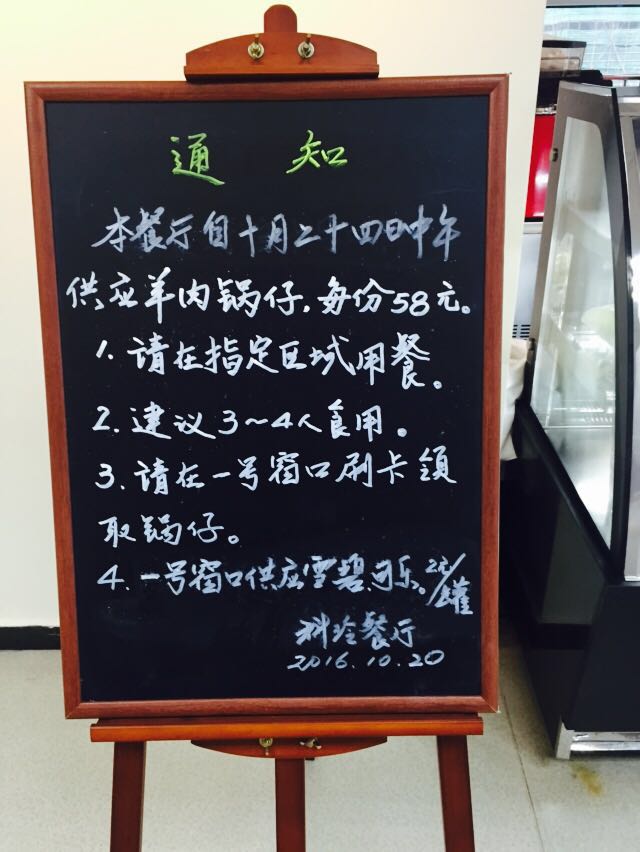 通知
本餐厅自十月二十四日中午
供应羊肉锅仔,每份58元。
1.请在指定区域用餐。
2.建议3~4人食用。
3.请在一号窗口刷卡领
取锅仔。
4.一号窗口供应雪碧可乐。2元/罐
科玲餐厅
2016.10.20